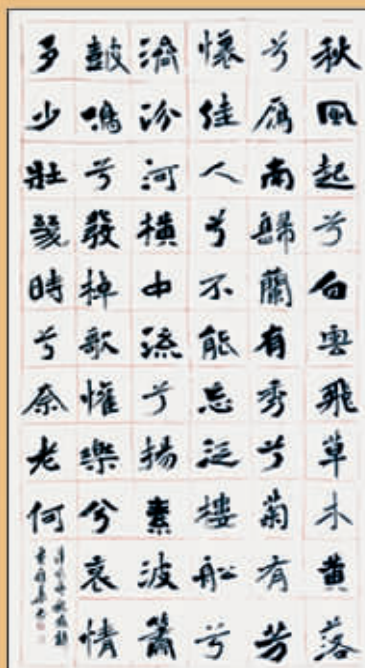 秋風起兮白雲飛草木黄落
兮雁南歸蘭有秀兮菊有芳
懷佳人兮不能忘泛樓舩兮
濟汾河横中流兮揚素波簫
鼓鳴兮發棹歌懽樂兮哀情
多少壯幾時兮奈老何
漢武帝秋風辭